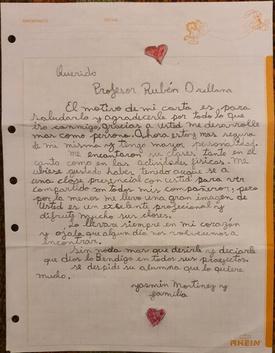 Querido
Profesor Rubén Orellana
El motivo de mi carta es, para
saludarlo y agradecerle por todo lo que
hizo conmigo, gracias a usted me desarrolle
mas como persona. Ahora estoy mas segura
de mi misma y tengo mayor personalidad.
Me encantaron sus clases tanto en el
canto como en las actividades fisicas. Me
ubiese gustado haber tenido aunque sea
una clase presencial con usted para ver
compartido con todos mis compañeros, pero
por lo menos me llevo una gran imagen de
Usted es un excelente profesional y
disfrute mucho sus clases.
Lo llevare siempre en mi corazón
y ojala que algun dia nos volvamos a
encontrar.
Sin nada mas que decirle y decearle
que dios lo bendiga en todos sus proyectos.
se despide su alumna que lo quiere
mucho.
Yasmin Martinez y
familia
RHEIN